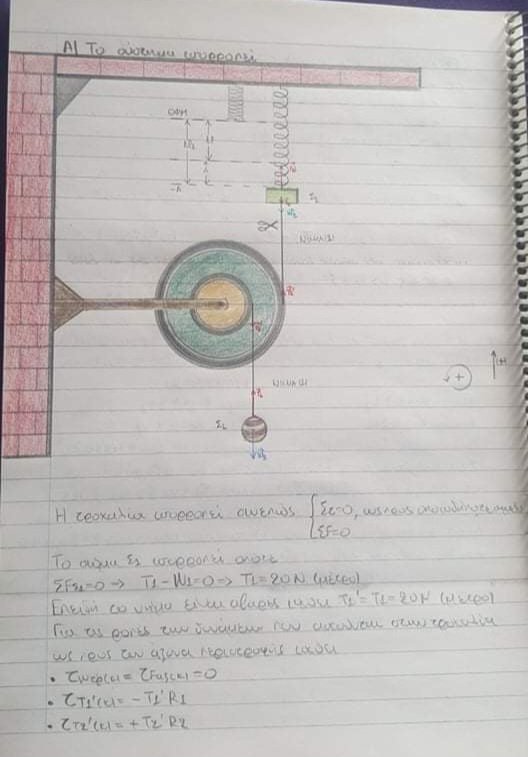 Α) Το σύστημα ισορροπεί
ΘΦΜ
-Α
Σ2
ΝΗΜΑ(1)
(+)
(+)
Η τροχαλία ισορροπεί συνεπώς { Στ=0, ως προς οποιοδήποτε
ΣF=0
Το σώμα Σ1 ισορροπεί οπότε
ΣFΣ1=0 => T1-W1=0 => T1=20N (μέτρο)
Επειδή το νήμα είναι αβαρές ισχύει T1'=T1=20N (μέτρο)
Για τις ροπές των δυνάμεων που ασκούνται στην τροχαλία
ως προς τον άξονα περιστροφής ισχύει
• τWτρ(κ)=τFαξ(κ)=0
• τT1'(κ)=-T1'R1
• τT2'(κ)=+T2'R2